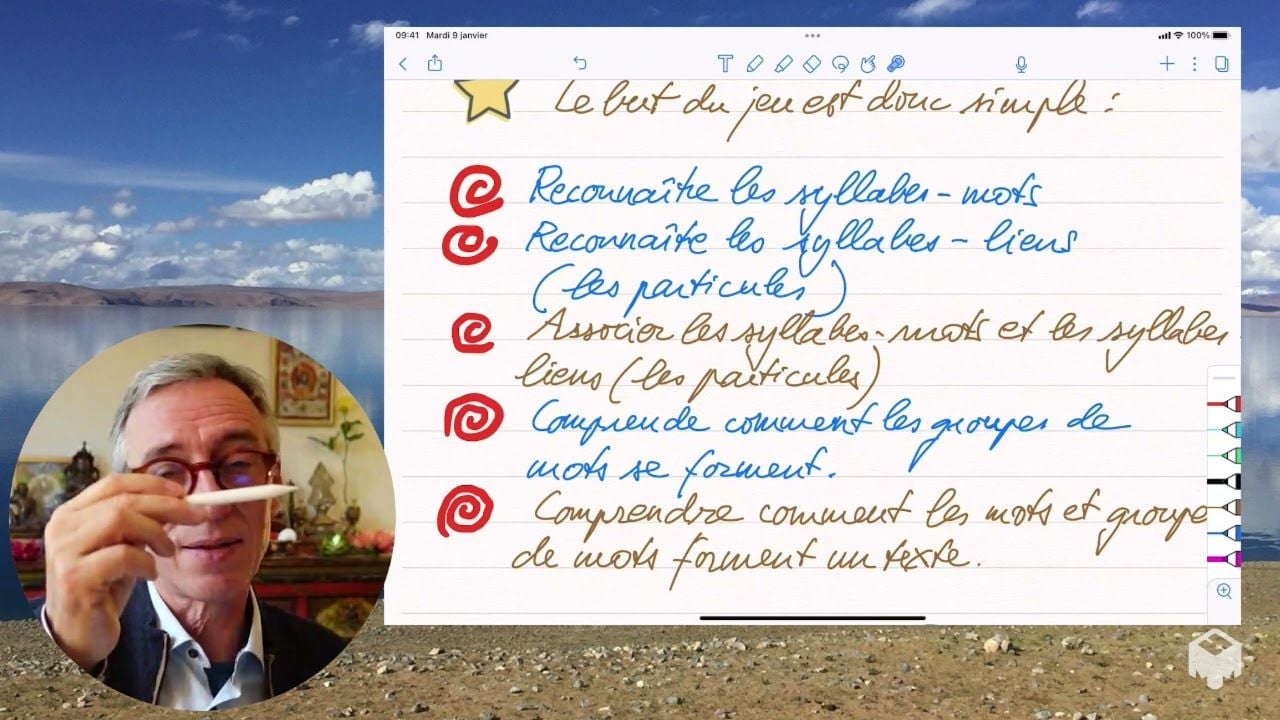 09:41 Mardi 9 janvier
100%
Le but du jeu est donc simple :
Reconnaître les syllabes-mots
Reconnaître les syllabes-liens
(les particules)
Associer les syllabes-mots et les syllabes
liens (les particules)
Comprende comment les groupes de
mots se forment.
Comprendre comment les mots et groupe
de mots forment un texte.